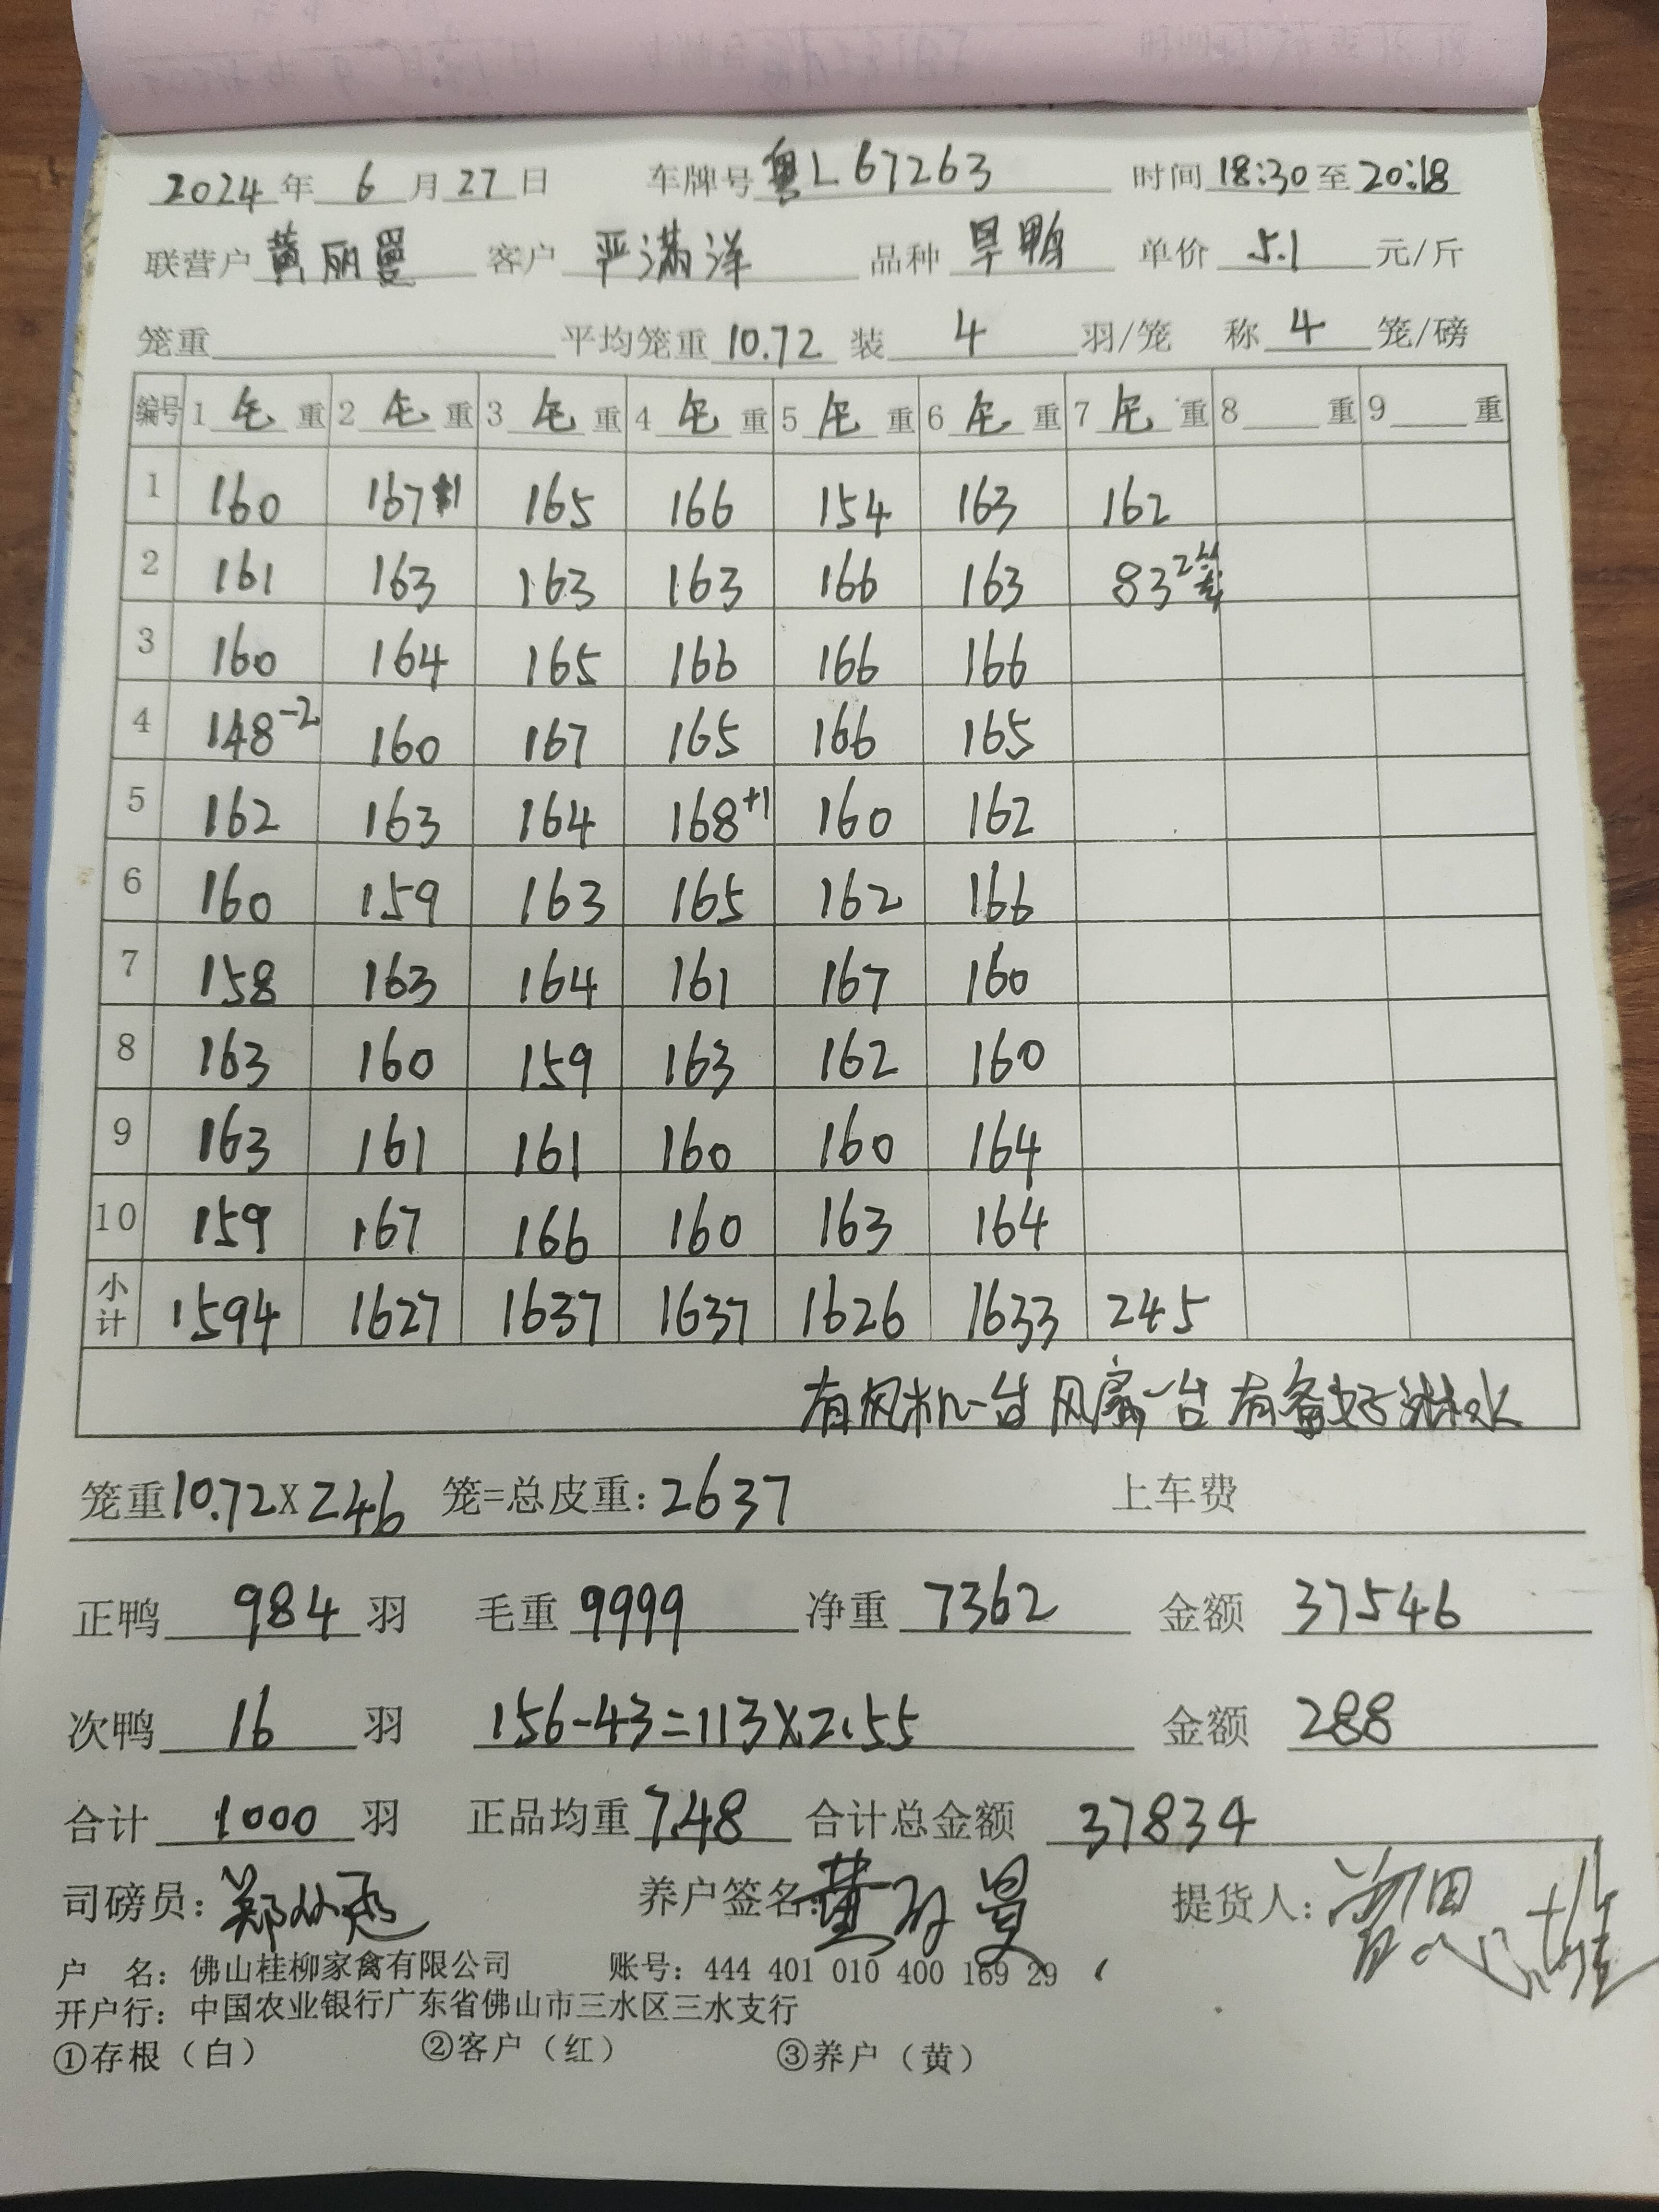 2024年 6月27日 车牌号 粤L67263 时间 18:30 至 20:18
联营户 黄丽曼 客户 严满洋 品种 旱鸭 单价 5.1 元/斤
笼重 平均笼重 10.72 装 4 羽/笼 称 4 笼/磅
编号 1 毛 重 2 毛 重 3 毛 重 4 毛 重 5 毛 重 6 毛 重 7 毛 重 8 重 9 重
1 160 167 165 166 154 163 162
2 161 163 163 163 166 163 83 2笼
3 160 164 165 166 166 166
4 148-2 160 167 165 166 165
5 162 163 164 168+1 160 162
6 160 159 163 165 162 166
7 158 163 164 161 167 160
8 163 160 159 163 162 160
9 163 161 161 160 160 164
10 159 167 166 160 163 164
小计 1594 1627 1637 1637 1626 1633 245
有风机一台 风扇一台 有备好淋水
笼重10.72X246 笼=总皮重:2637 上车费
正鸭 984 羽 毛重 9999 净重 7362 金额 37546
次鸭 16 羽 156-43=113X2.55 金额 288
合计 1000 羽 正品均重 7.48 合计总金额 37834
司磅员: 养户签名: 黄丽曼 提货人:
户 名: 佛山桂柳家禽有限公司 账号: 444 401 010 400 169 29
开户行: 中国农业银行广东省佛山市三水区三水支行
①存根（白） ②客户（红） ③养户（黄）